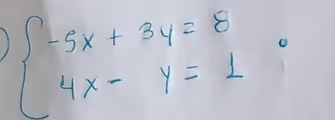 ) { -5x + 3y = 8
4x - y = 1 ;